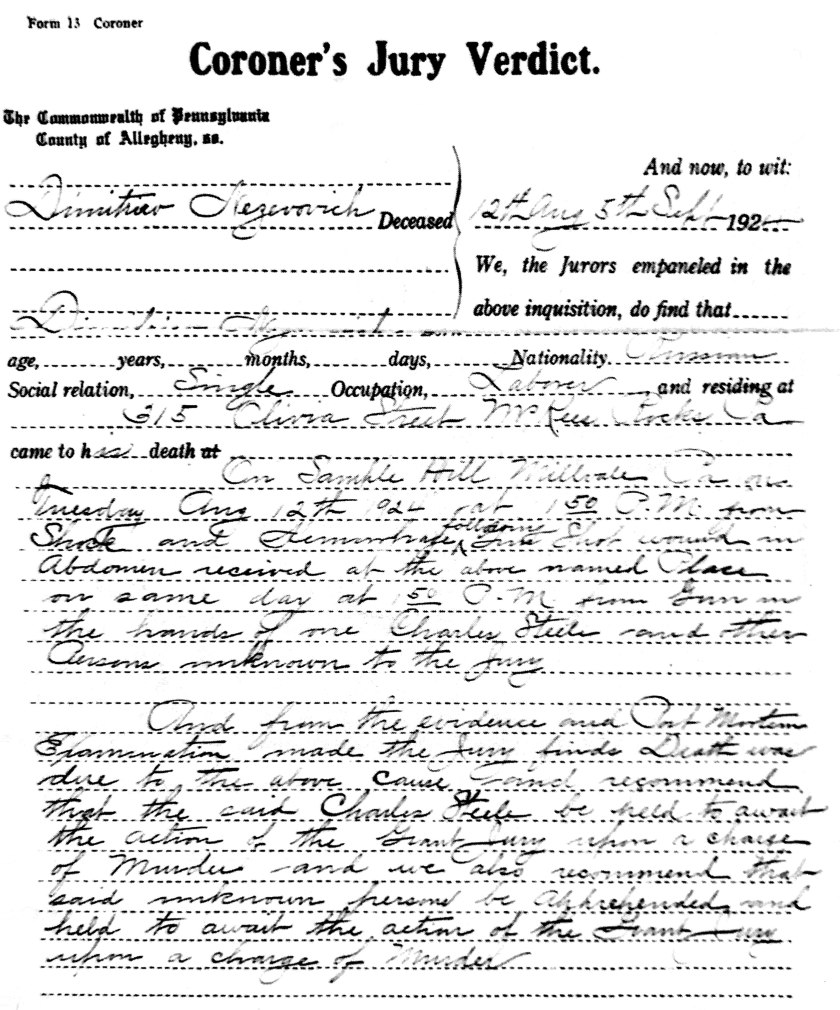 Form 13 Coroner
Coroner's Jury Verdict.
The Commonwealth of Pennsylvania
County of Allegheny, ss.
And now, to wit:
Dimitriv Deceased 12th Aug 5th Sept 192
We, the Jurors empaneled in the
above inquisition, do find that
age, years, months, days, Nationality. Russian
Social relation, Single Occupation, Laborer and residing at
315 Olivia Street McKees Rocks Pa
came to his death at
On Samble Hill Millvale Pa on
Tuesday Aug 12th 1924 at 1 50 P.M. from
Shock and Hemorrhage following Gun Shot wound in
Abdomen received at the above named Place
on same day at 1 50 P.M. from Gun in
the hands of one Charles Steele and other
Persons unknown to the Jury
And from the evidence and Post Mortem
Examination made the Jury finds Death was
due to the above cause and recommend
that the said Charles Steele be held to await
the action of the Grant Jury upon a charge
of Murder and we also recommend that
said unknown persons be Apprehended and
held to await the action of the Grant Jury
upon a charge of Murder